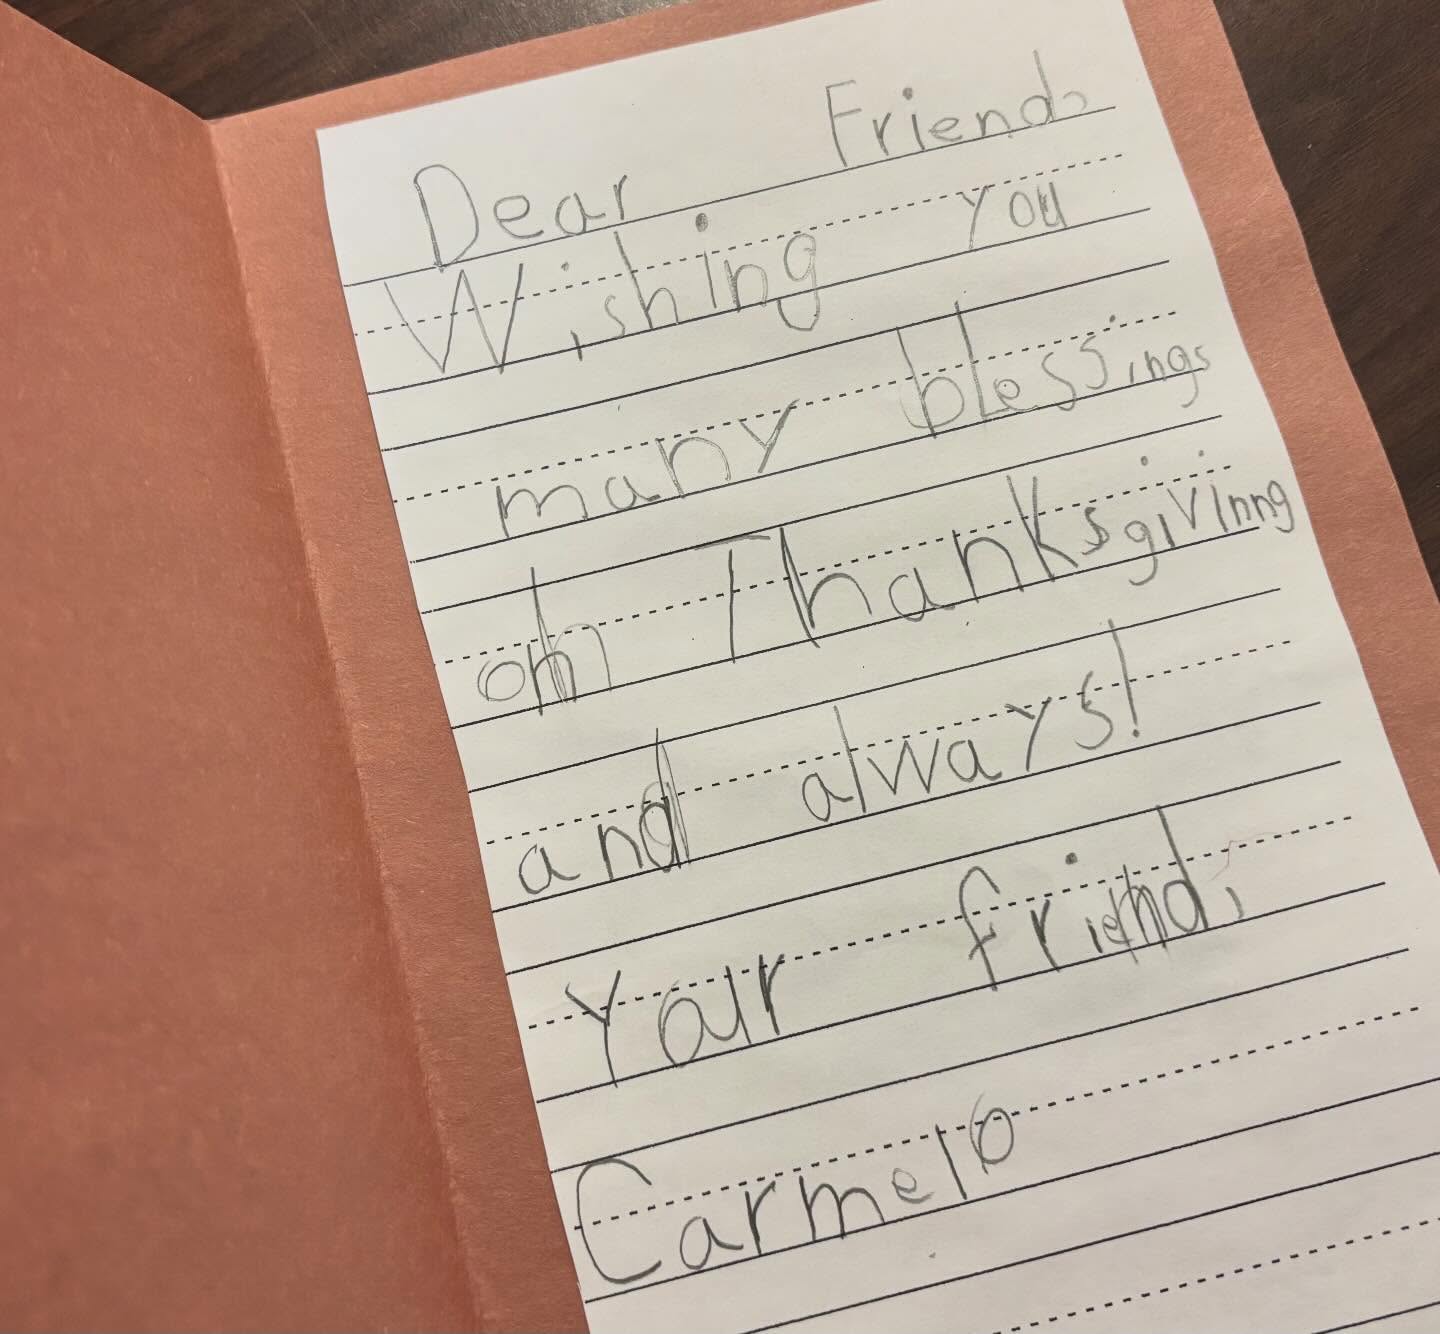 Dear Friend,
Wishing you
many blessings
on Thanksgivinng
and always!
Your friend,
Carmelo